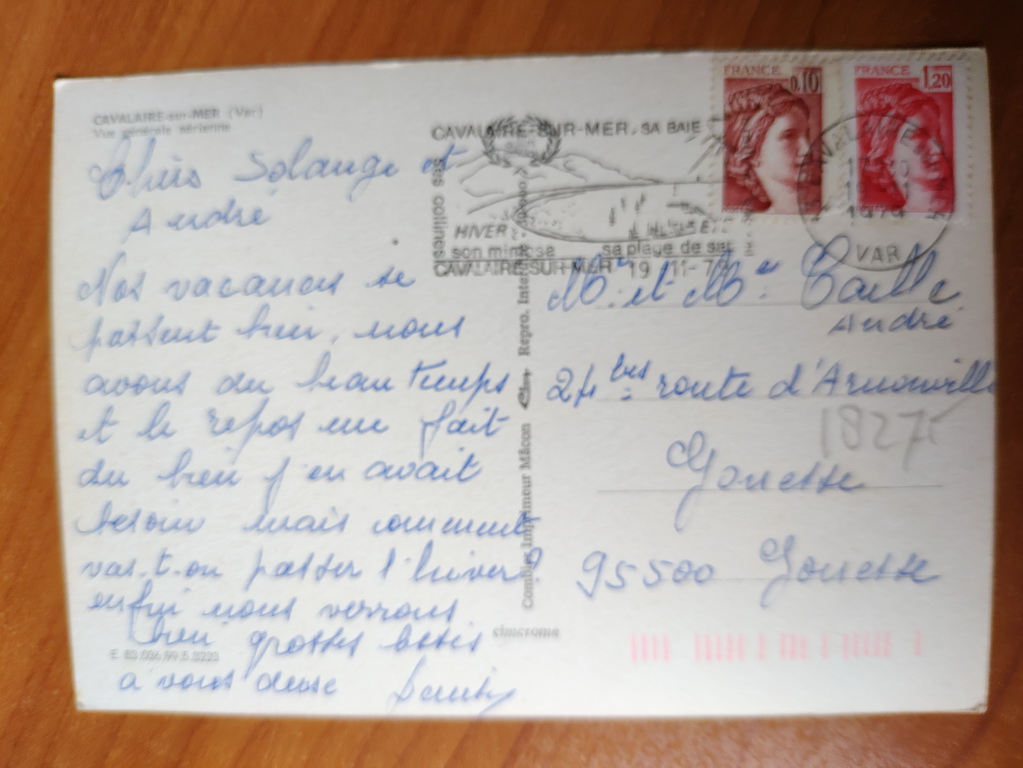 CAVALAIRE-sur-MER (Var)
Vue générale aérienne
Chers Solange et
André
Nos vacances se
passent bien, nous
avons du beau temps
et le repos me fait
du bien j'en avait
besoin mais comment
vas-t-on passer l'hiver?
enfin nous verrons
bien grosses
à vous deux
E. 83.036.99.5.5220
Combier Imprimeur Mâcon
Repro. Inter
cimcroma
CAVALAIRE-SUR-MER, SA BAIE
ses collines
HIVER
son mimosa
sa plage de
CAVALAIRE-SUR-MER 19 -11-79
FRANCE 0,10
FRANCE 1,20
VAR
Mr. et Mme. Caille
André
24 bis route d'Arnouville
18275
Gonesse
95500 Gonesse